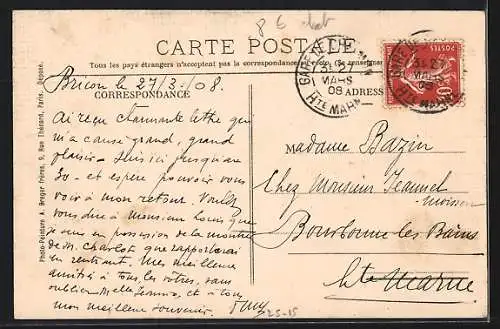 CARTE POSTALE
Tous les pays étrangers n'acceptent pas la correspondance au recto.
Bricon le 27/3-08.
CORRESPONDANCE
ADRESSE
Ai reçu charmante lettre qui
m'a causé grand, grand
plaisir - Suis ici jusqu'au
30 - et espère pouvoir vous
voir à mon retour. Voulez
vous dire à Monsieur Louis que
je suis en possession de la montre
de M. Charlot que rapporterai
en rentrant. Mes meilleures
amitiés à tous les vôtres, sans
oublier Melle Jeanne, et à tous
mon meilleur souvenir.
25-15
Madame Bazin
Chez Monsieur Jeannel
Bourbonne les Bains
Hte Marne
POSTES
10
GARE DE
3E 27
MARS
08
HTE MARNE
3E 27
MARS
08
Photo-Peinture A. Breger Frères, 9, Rue Thénard, Paris. Déposé.